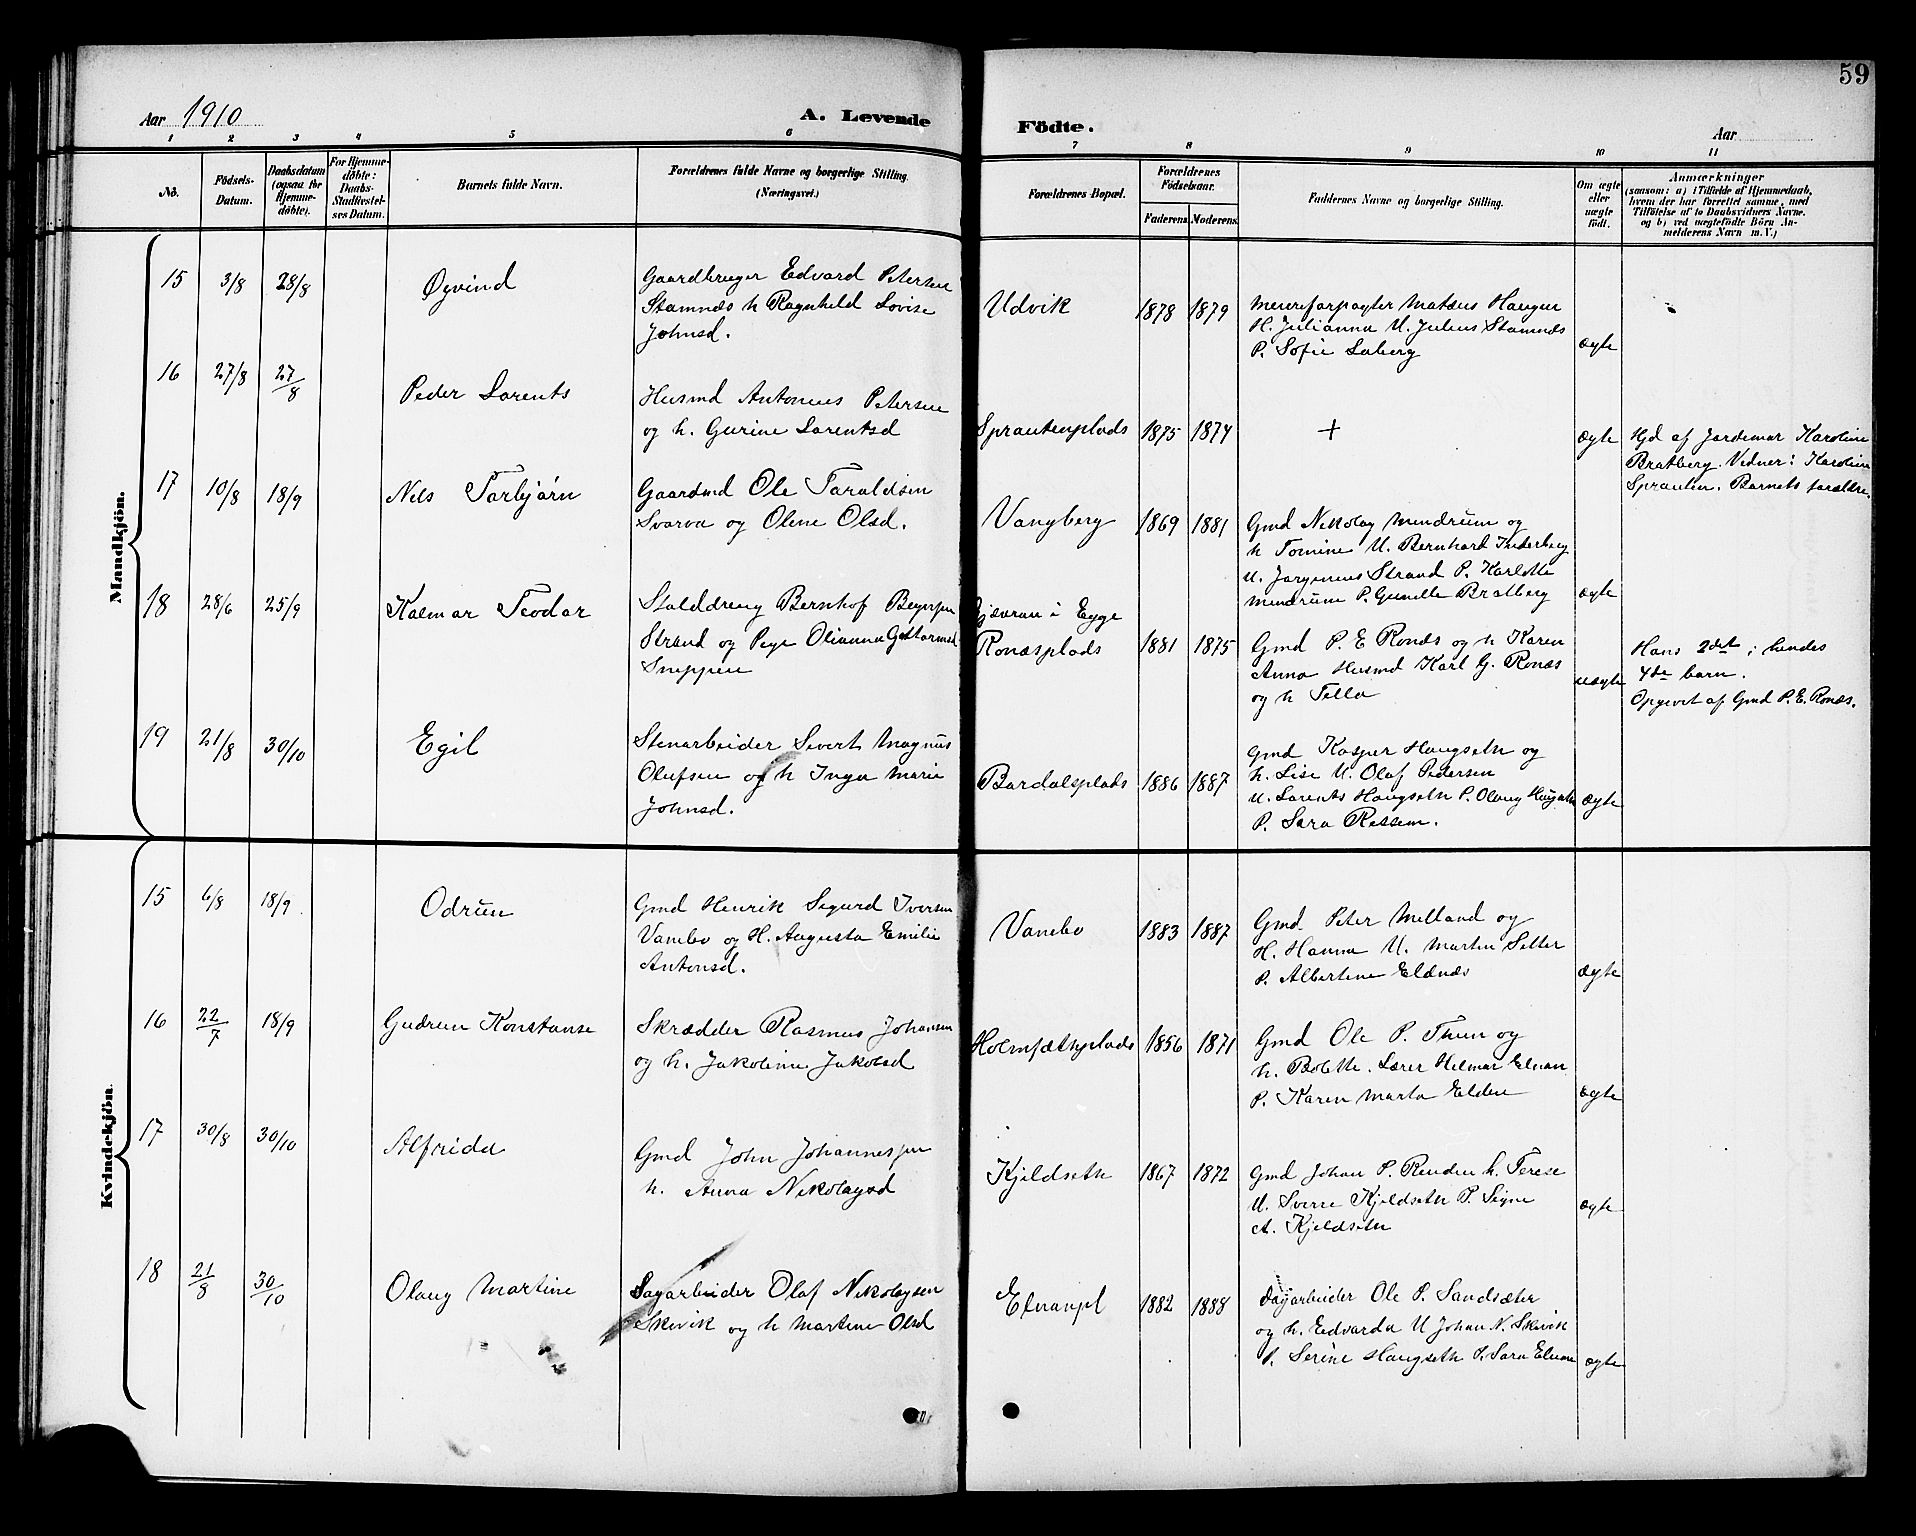 59
Aar 1910
A. Levende
Födte.
Aar
1 2 3 4 5 6 7 8 9 10 11
No.
Födsels-Datum.
Daabsdatum (ogsaa for Hjemme-døbte).
For Hjemme-døbte: Daabs-Stadfæstel-ses Datum.
Barnets fulde Navn.
Forældrenes fulde Navne og borgerlige Stilling.
(Næringsvei.)
Forældrenes Bopæl.
Forældrenes Födselsaar.
Faderens. Moderens.
Faddernes Navne og borgerlige Stilling.
Om ægte eller uægte født.
Anmærkninger
(saasom: a) i Tilfælde af Hjemmedaab,
hvem der har forrettet samme, med
Tilföielse af to Daabsvidners Navne.
og b) ved uægtefødte Börn An-
melderens Navn m. V.)
Mandkjön.
15 3/8 28/8 Øyvind
Gaardbruger Edvard Petersen
Stamnæs h Ragnhild Lovise
Johnsd.
Udvik 1878 1879
Meiereforpagter Matæus Haugen
H. Julianna U. Julius Stamnæs
P. Sofie Saberg
ægte
16 27/8 27/8 Peder Lorents
Husmd Antonius Petersen
og h. Gurine Lorentsd
Sprautenplads 1875 1874 + ægte
Hjd af Jordemor Karoline
Bratberg. Vidner: Karoline
Sprauten. Barnets forældre.
17 10/8 18/9 Nils Torbjørn
Gaardmd Ole Taraldsen
Svarva og Oline Olsd.
Vangberg 1869 1881
Gmd Nikolay Mendrum og
h Tomine U. Bernhard Inderberg
U. Jørgenius Strand P. Karlotte
Mendrum P. Gunelle Bratberg
ægte
18 28/6 25/9 Kalmar Teodor
Stalddreng Bernhof Beyersen
Strand og Pige Olianna Guttormsd
Sneppen
Gjævran i Egge
Ronæsplads 1881 1875
Gmd P. E Ronæs og h Karen
Anna Husmd Karl G. Ronæs
og h Tella
uægte
Hans 2det; hendes
4de barn.
Opgivet af Gmd P. E. Ronæs.
19 21/8 30/10 Egil
Stenarbeider Sivert Magnus
Olufsen og h Inga Marie
Johnsd.
Bardalsplads 1886 1887
Gmd Kasper Haugseth og
h. Lise U. Olaf Pedersen
U. Lorents Haugseth P. Olaug Haugseth
P. Sara Ressem.
ægte
Kvindekjön.
15 6/8 18/9 Odrun
Gmd Henrik Sigurd Iversen
Vanebo og H. Augusta Emilie
Antonsd.
Vanebo 1883 1887
Gmd Peter Melland og
H. Hanna U. Martin Setter
P. Albertine Eldnæs
ægte
16 22/7 18/9 Gudrun Konstanse
Skrædder Rasmus Johansen
og h. Jakoline Jakobsd
Holmsethplads 1856 1871
Gmd Ole P. Thun og
h. Bolette. Lærer Helmar Elnan
P. Karen Marta Elden
ægte
17 30/8 30/10 Alfrida
Gmd John Johannessen
h. Anna Nikolaysd
Kjeldseth 1867 1872
Gmd Johan P. Renden h. Terese
U. Sverre Kjeldseth P. Signe
A. Kjeldseth
ægte
18 21/8 30/10 Olaug Martine
Sagarbeider Olaf Nikolaysen
Skevik og h Martine Olsd
Elnanpl 1882 1888
Sagarbeider Ole P. Sandsæter
og h. Edvarda U Johan N. Skevik
P. Serine Haugseth P. Sara Elnan
ægte